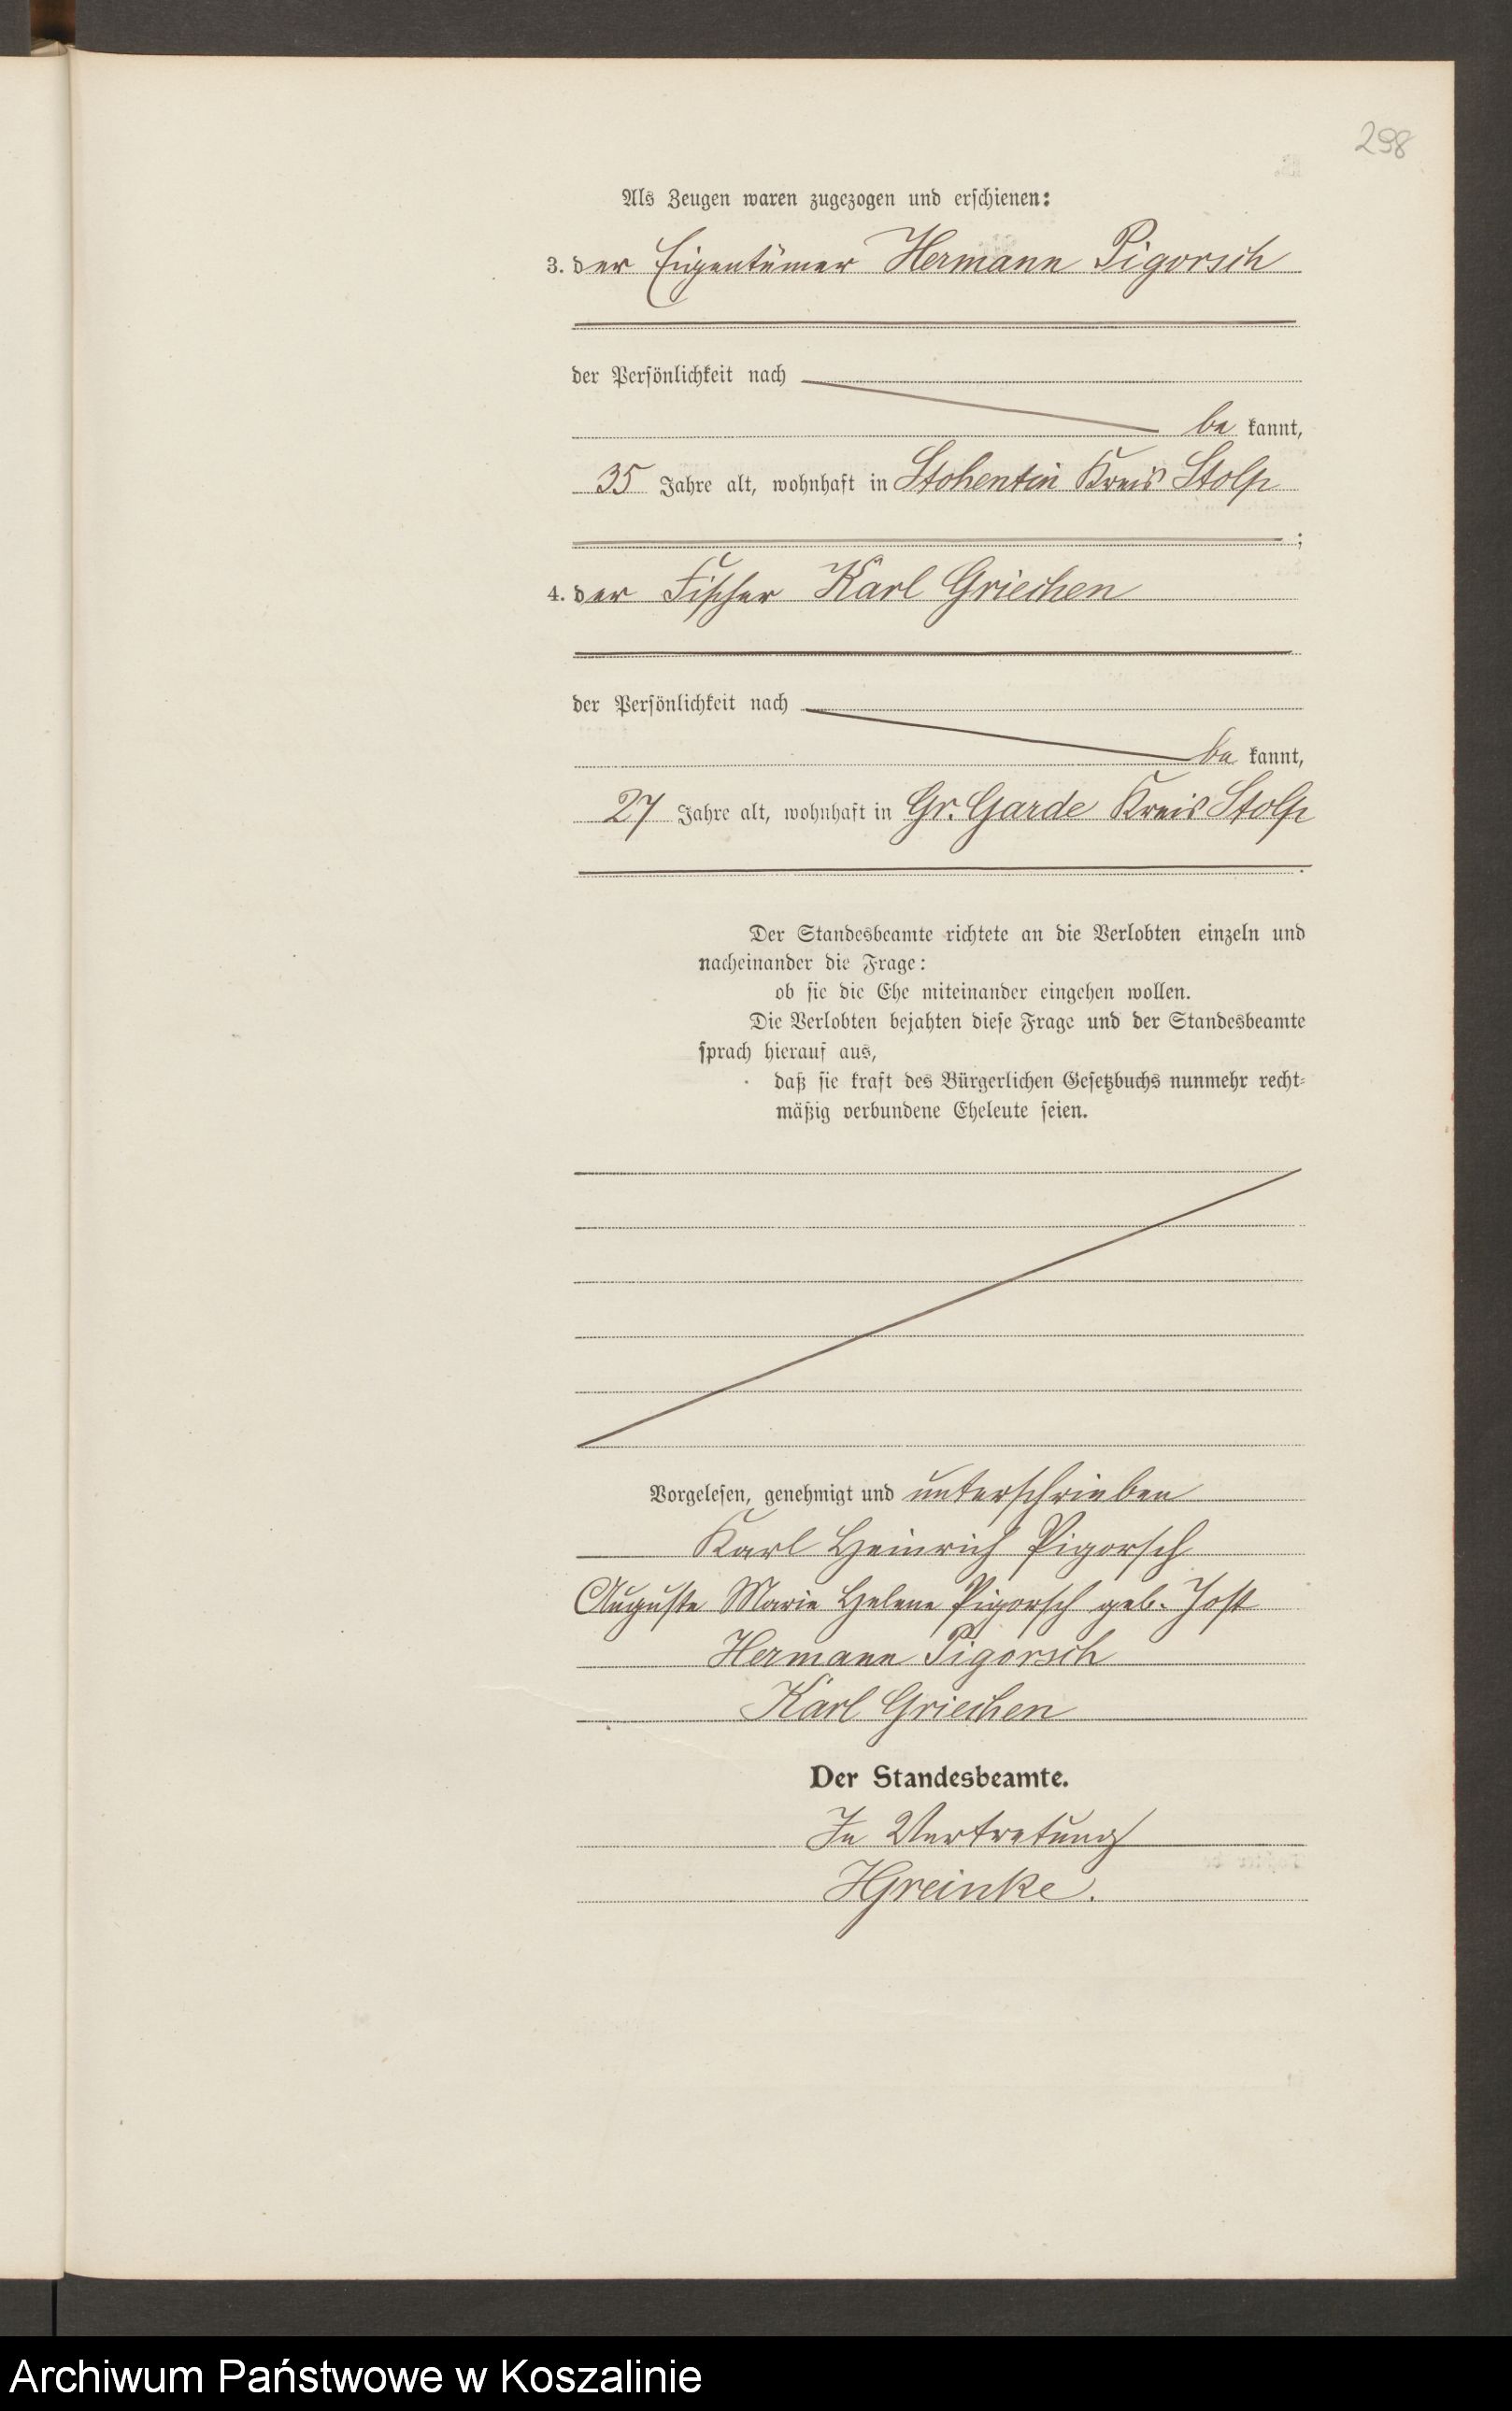 298
Als Zeugen waren zugezogen und erschienen:
3. der Eigentümer Hermann Pigorsch
der Persönlichkeit nach
be kannt,
35 Jahre alt, wohnhaft in Stohentin Kreis Stolp
;
4. der Fischer Karl Griechen
der Persönlichkeit nach
be kannt,
27 Jahre alt, wohnhaft in Gr. Garde Kreis Stolp
.
Der Standesbeamte richtete an die Verlobten einzeln und
nacheinander die Frage:
ob sie die Ehe miteinander eingehen wollen.
Die Verlobten bejahten diese Frage und der Standesbeamte
sprach hierauf aus,
daß sie kraft des Bürgerlichen Gesetzbuchs nunmehr recht-
mäßig verbundene Eheleute seien.
Vorgelesen, genehmigt und unterschrieben
Karl Heinrich Pigorsch
Auguste Marie Helene Pigorsch geb. Jost
Hermann Pigorsch
Karl Griechen
Der Standesbeamte.
In Vertretung
HGreinke.
Archiwum Państwowe w Koszalinie